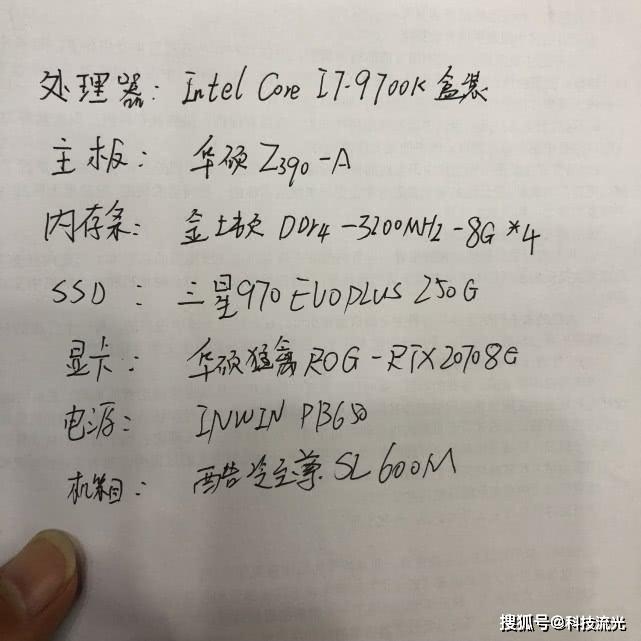 处理器: Intel Core I7-9700K 盒装
主板: 华硕 Z390-A
内存条: 金士顿 DDr4-3200MHz-8G*4
SSD: 三星970 EVOPLUS 250G
显卡: 华硕猛禽ROG-RTX20708G
电源: INWIN PB650
机箱: 酷冷至尊 SL600M
搜狐号@科技流光